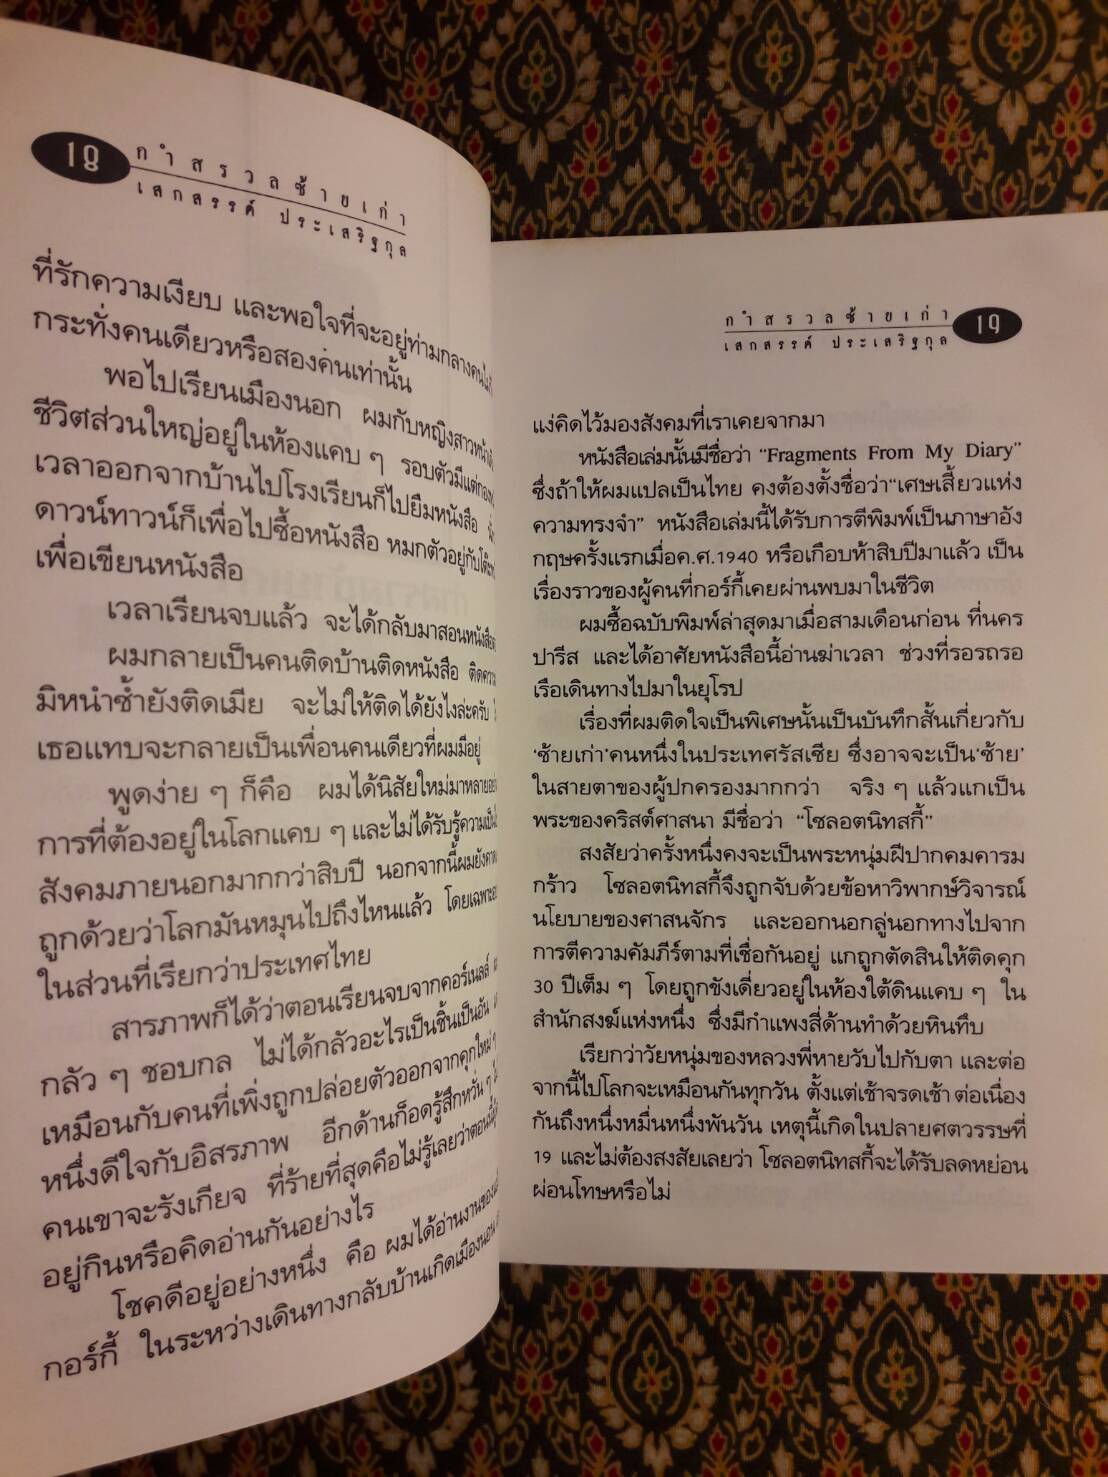 18
กำสรวลซ้ายเก่า
เสกสรรค์ ประเสริฐกุล
ที่รักความเงียบ และพอใจที่จะอยู่ท่ามกลางคน
กระทั่งคนเดียวหรือสองคนเท่านั้น
พอไปเรียนเมืองนอก ผมกับหญิงสาวหน้า
ชีวิตส่วนใหญ่อยู่ในห้องแคบ ๆ รอบตัวมีแต่กอง
เวลาออกจากบ้านไปโรงเรียนก็ไปยืมหนังสือ
ดาวน์ทาวน์ก็เพื่อไปซื้อหนังสือ หมกตัวอยู่กับโต๊ะ
เพื่อเขียนหนังสือ
เวลาเรียนจบแล้ว จะได้กลับมาสอนหนังสือ
ผมกลายเป็นคนติดบ้านติดหนังสือ ติด
มิหนำซ้ำยังติดเมีย จะไม่ให้ติดได้ยังไงล่ะครับ
เธอแทบจะกลายเป็นเพื่อนคนเดียวที่ผมมีอยู่
พูดง่าย ๆ ก็คือ ผมได้นิสัยใหม่มาหลาย
การที่ต้องอยู่ในโลกแคบ ๆ และไม่ได้รับรู้ความเป็น
สังคมภายนอกมากกว่าสิบปี นอกจากนี้ผมยังคาด
ถูกด้วยว่าโลกมันหมุนไปถึงไหนแล้ว โดยเฉพาะ
ในส่วนที่เรียกว่าประเทศไทย
สารภาพก็ได้ว่าตอนเรียนจบจากคอร์เนลล์
กลัว ๆ ชอบกล ไม่ได้กลัวอะไรเป็นชิ้นเป็นอัน
เหมือนกับคนที่เพิ่งถูกปล่อยตัวออกจากคุกใหม่ ๆ
หนึ่งดีใจกับอิสรภาพ อีกด้านก็อดรู้สึกหวั่น ๆ
คนเขาจะรังเกียจ ที่ร้ายที่สุดคือไม่รู้เลยว่าตอนนี้
อยู่กินหรือคิดอ่านกันอย่างไร
โชคดีอยู่อย่างหนึ่ง คือ ผมได้อ่านงานของ
กอร์กี้ ในระหว่างเดินทางกลับบ้านเกิดเมืองนอน
กำสรวลซ้ายเก่า
เสกสรรค์ ประเสริฐกุล
19
แง่คิดไว้มองสังคมที่เราเคยจากมา
หนังสือเล่มนั้นมีชื่อว่า “Fragments From My Diary”
ซึ่งถ้าให้ผมแปลเป็นไทย คงต้องตั้งชื่อว่า“เศษเสี้ยวแห่ง
ความทรงจำ” หนังสือเล่มนี้ได้รับการตีพิมพ์เป็นภาษาอัง
กฤษครั้งแรกเมื่อค.ศ.1940 หรือเกือบห้าสิบปีมาแล้ว เป็น
เรื่องราวของผู้คนที่กอร์กี้เคยผ่านพบมาในชีวิต
ผมซื้อฉบับพิมพ์ล่าสุดมาเมื่อสามเดือนก่อน ที่นคร
ปารีส และได้อาศัยหนังสือนี้อ่านฆ่าเวลา ช่วงที่รอรถรอ
เรือเดินทางไปมาในยุโรป
เรื่องที่ผมติดใจเป็นพิเศษนั้นเป็นบันทึกสั้นเกี่ยวกับ
‘ซ้ายเก่า’คนหนึ่งในประเทศรัสเซีย ซึ่งอาจจะเป็น‘ซ้าย’
ในสายตาของผู้ปกครองมากกว่า จริง ๆ แล้วแกเป็น
พระของคริสต์ศาสนา มีชื่อว่า “โซลอตนิทสกี้”
สงสัยว่าครั้งหนึ่งคงจะเป็นพระหนุ่มฝีปากคมคารม
กร้าว โซลอตนิทสกี้จึงถูกจับด้วยข้อหาวิพากษ์วิจารณ์
นโยบายของศาสนจักร และออกนอกลู่นอกทางไปจาก
การตีความคัมภีร์ตามที่เชื่อกันอยู่ แกถูกตัดสินให้ติดคุก
30 ปีเต็ม ๆ โดยถูกขังเดี่ยวอยู่ในห้องใต้ดินแคบ ๆ ใน
สำนักสงฆ์แห่งหนึ่ง ซึ่งมีกำแพงสี่ด้านทำด้วยหินทึบ
เรียกว่าวัยหนุ่มของหลวงพี่หายวับไปกับตา และต่อ
จากนี้ไปโลกจะเหมือนกันทุกวัน ตั้งแต่เช้าจรดเช้า ต่อเนื่อง
กันถึงหนึ่งหมื่นหนึ่งพันวัน เหตุนี้เกิดในปลายศตวรรษที่
19 และไม่ต้องสงสัยเลยว่า โซลอตนิทสกี้จะได้รับลดหย่อน
ผ่อนโทษหรือไม่